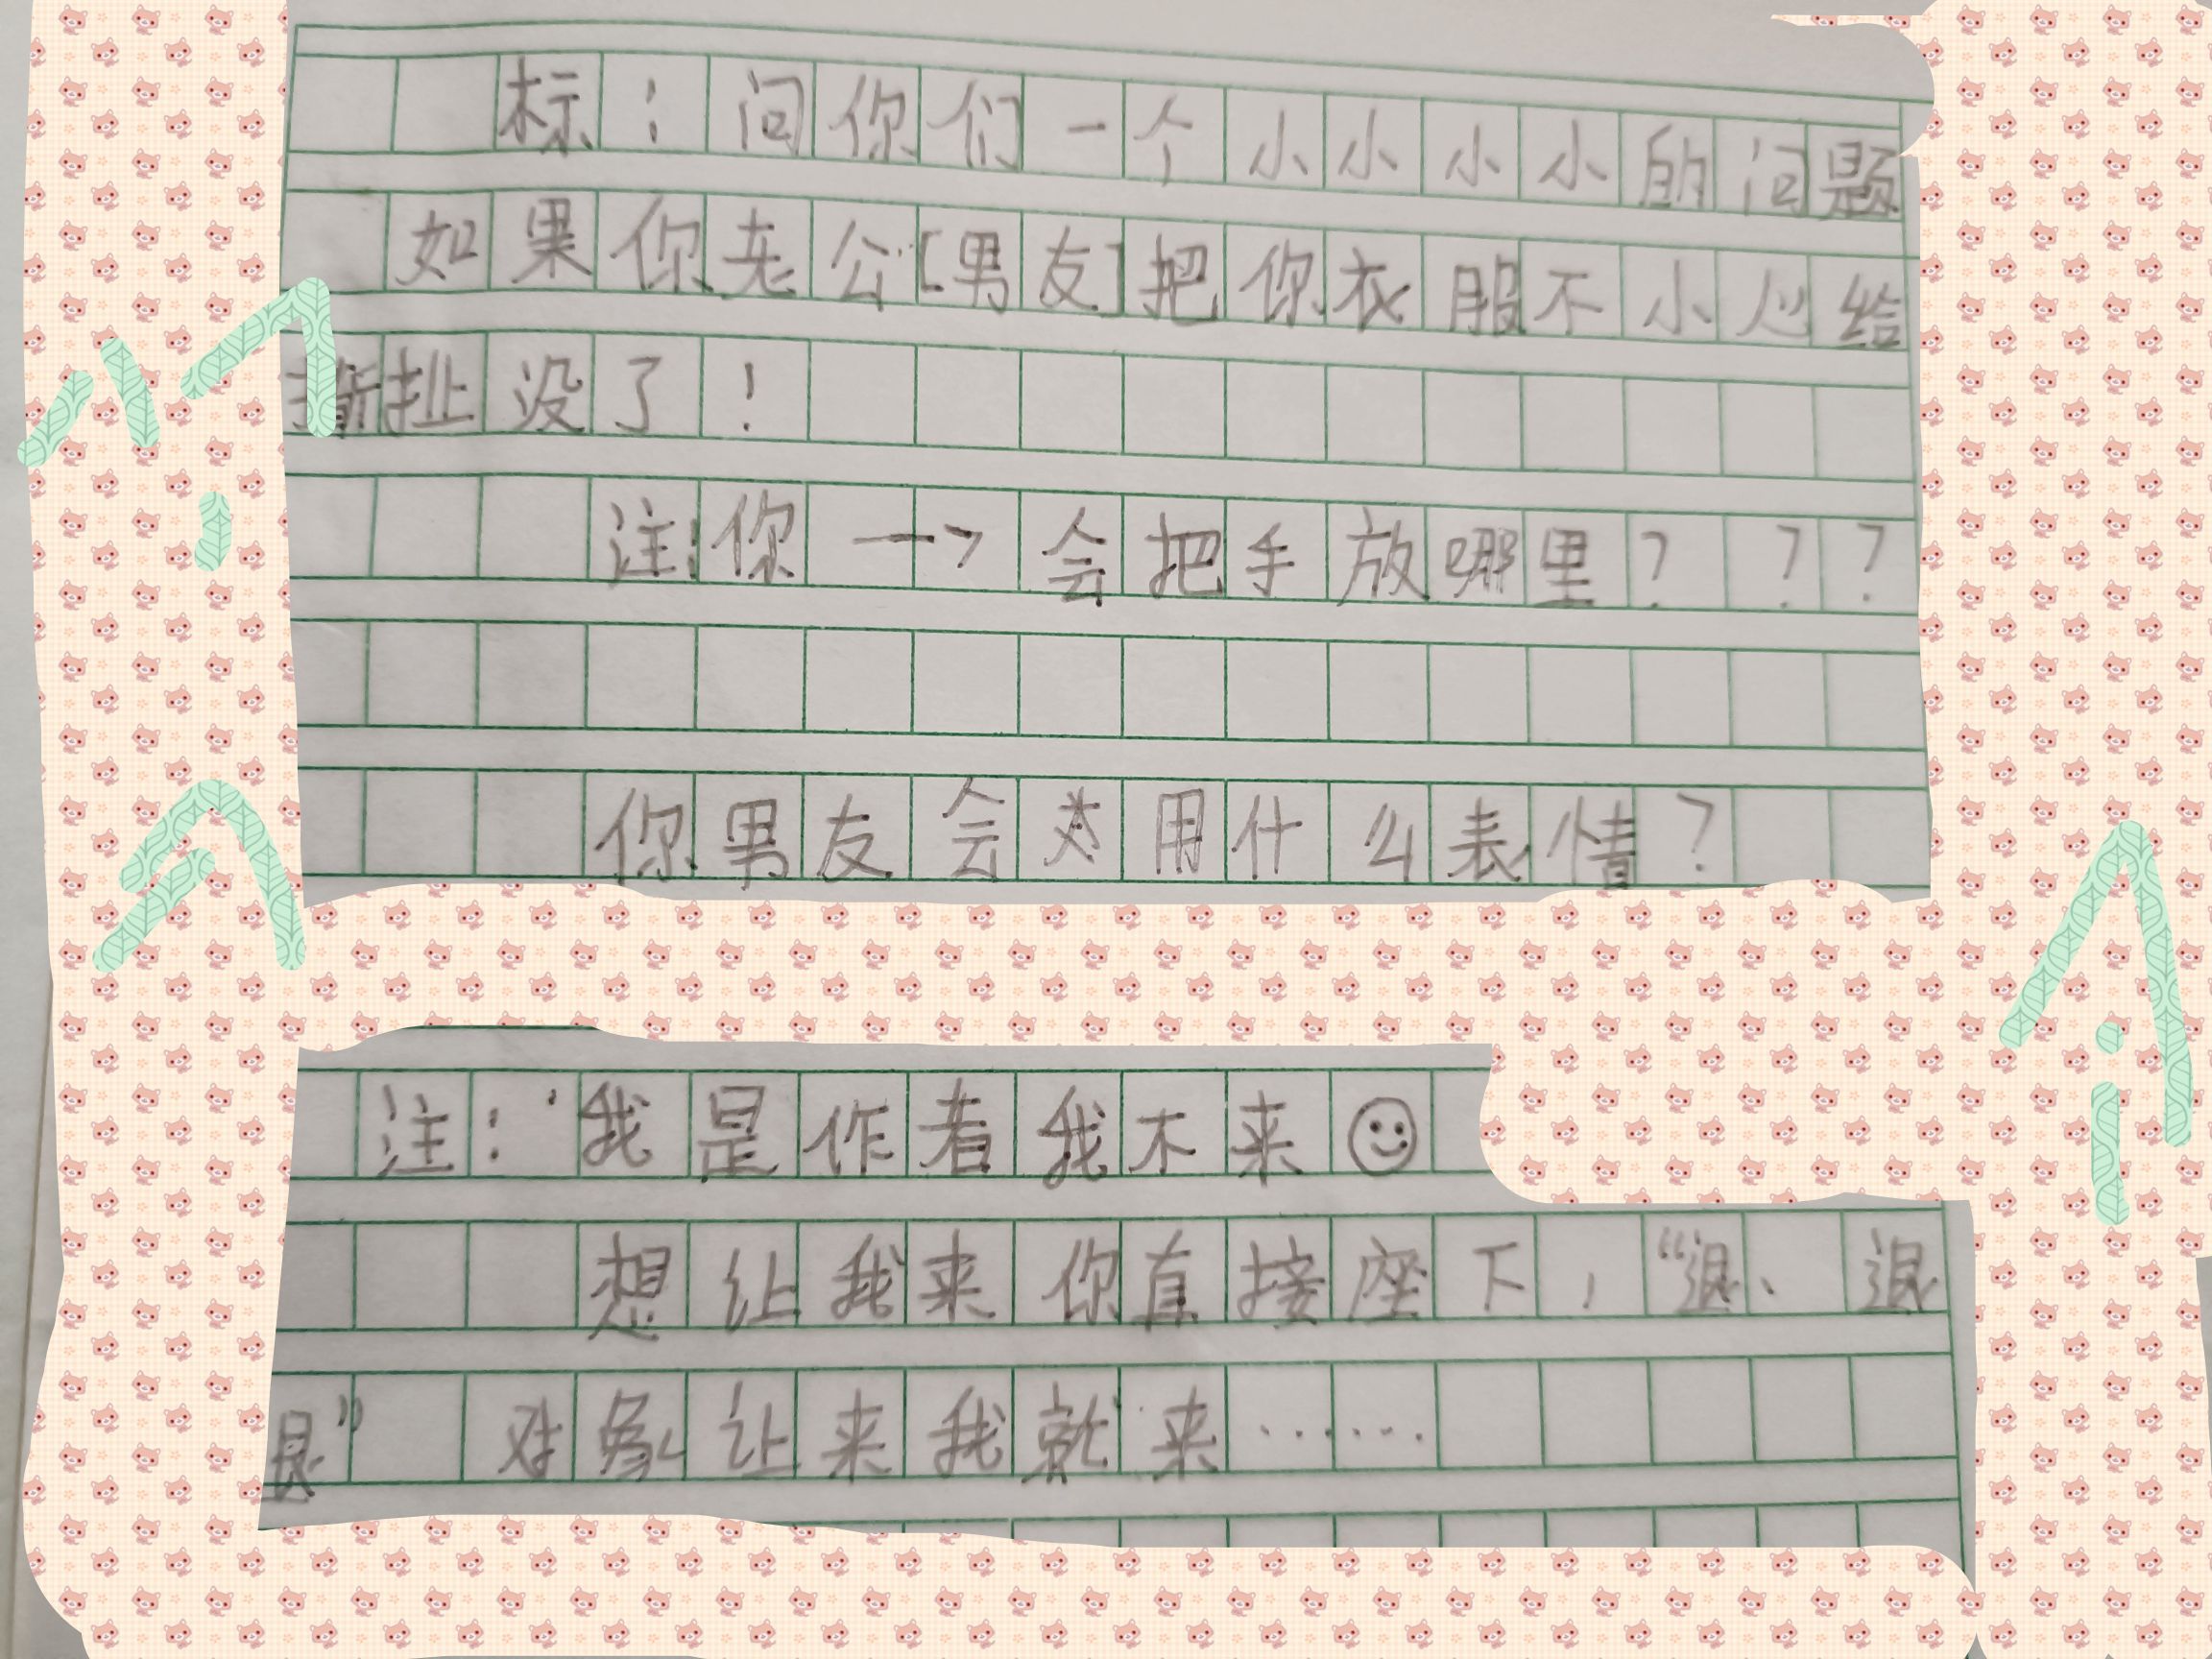 标：问你们一个小小小小的问题
如果你老公[男友]把你衣服不小心给
撕扯没了！
注：你一一>会把手放哪里？？？
你男友会用什么表情？
注：我是作者我不来☺
想让我来你直接座下，“退、退
退” 对象让来我就来……